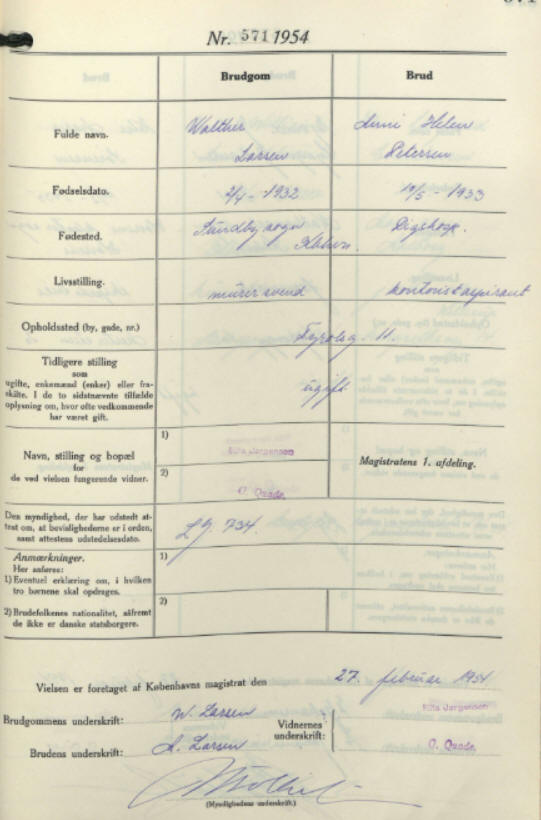 Nr. 571 1954
Brudgom
Brud
Fulde navn.
Walther
Larsen
Helen
Petersen
Fødselsdato.
2/4 - 1932
- 1933
Fødested.
Sundby sogn
Kbhvn.
Livsstilling.
murersvend
kontoristaspirant
Opholdssted (by, gade, nr.)
11.
Tidligere stilling
som
ugifte, enkemænd (enker) eller fra-
skilte. I de to sidstnævnte tilfælde
oplysning om, hvor ofte vedkommende
har været gift.
ugift
Navn, stilling og bopæl
for
de ved vielsen fungerende vidner.
1)
Ella Jørgensen
2)
O. Quade.
Magistratens 1. afdeling.
Den myndighed, der har udstedt at-
test om, at bevislighederne er i orden,
samt attestens udstedelsesdato.
734.
Anmærkninger.
Her anføres:
1) Eventuel erklæring om, i hvilken
tro børnene skal opdrages.
1)
2) Brudefolkenes nationalitet, såfremt
de ikke er danske statsborgere.
2)
Vielsen er foretaget af Københavns magistrat den
27. februar 1954
Brudgommens underskrift:
W. Larsen
Brudens underskrift:
A. Larsen
Vidnernes
underskrift:
Ella Jørgensen
O. Quade.
(Myndighedens underskrift.)